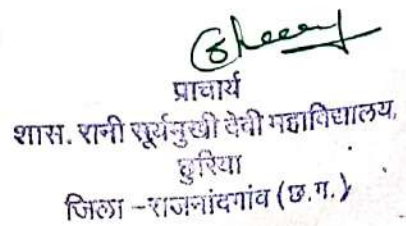 प्राचार्य
शास. रानी सूर्यमुखी देवी महाविद्यालय,
छुरिया
जिला – राजनांदगांव (छ.ग.)